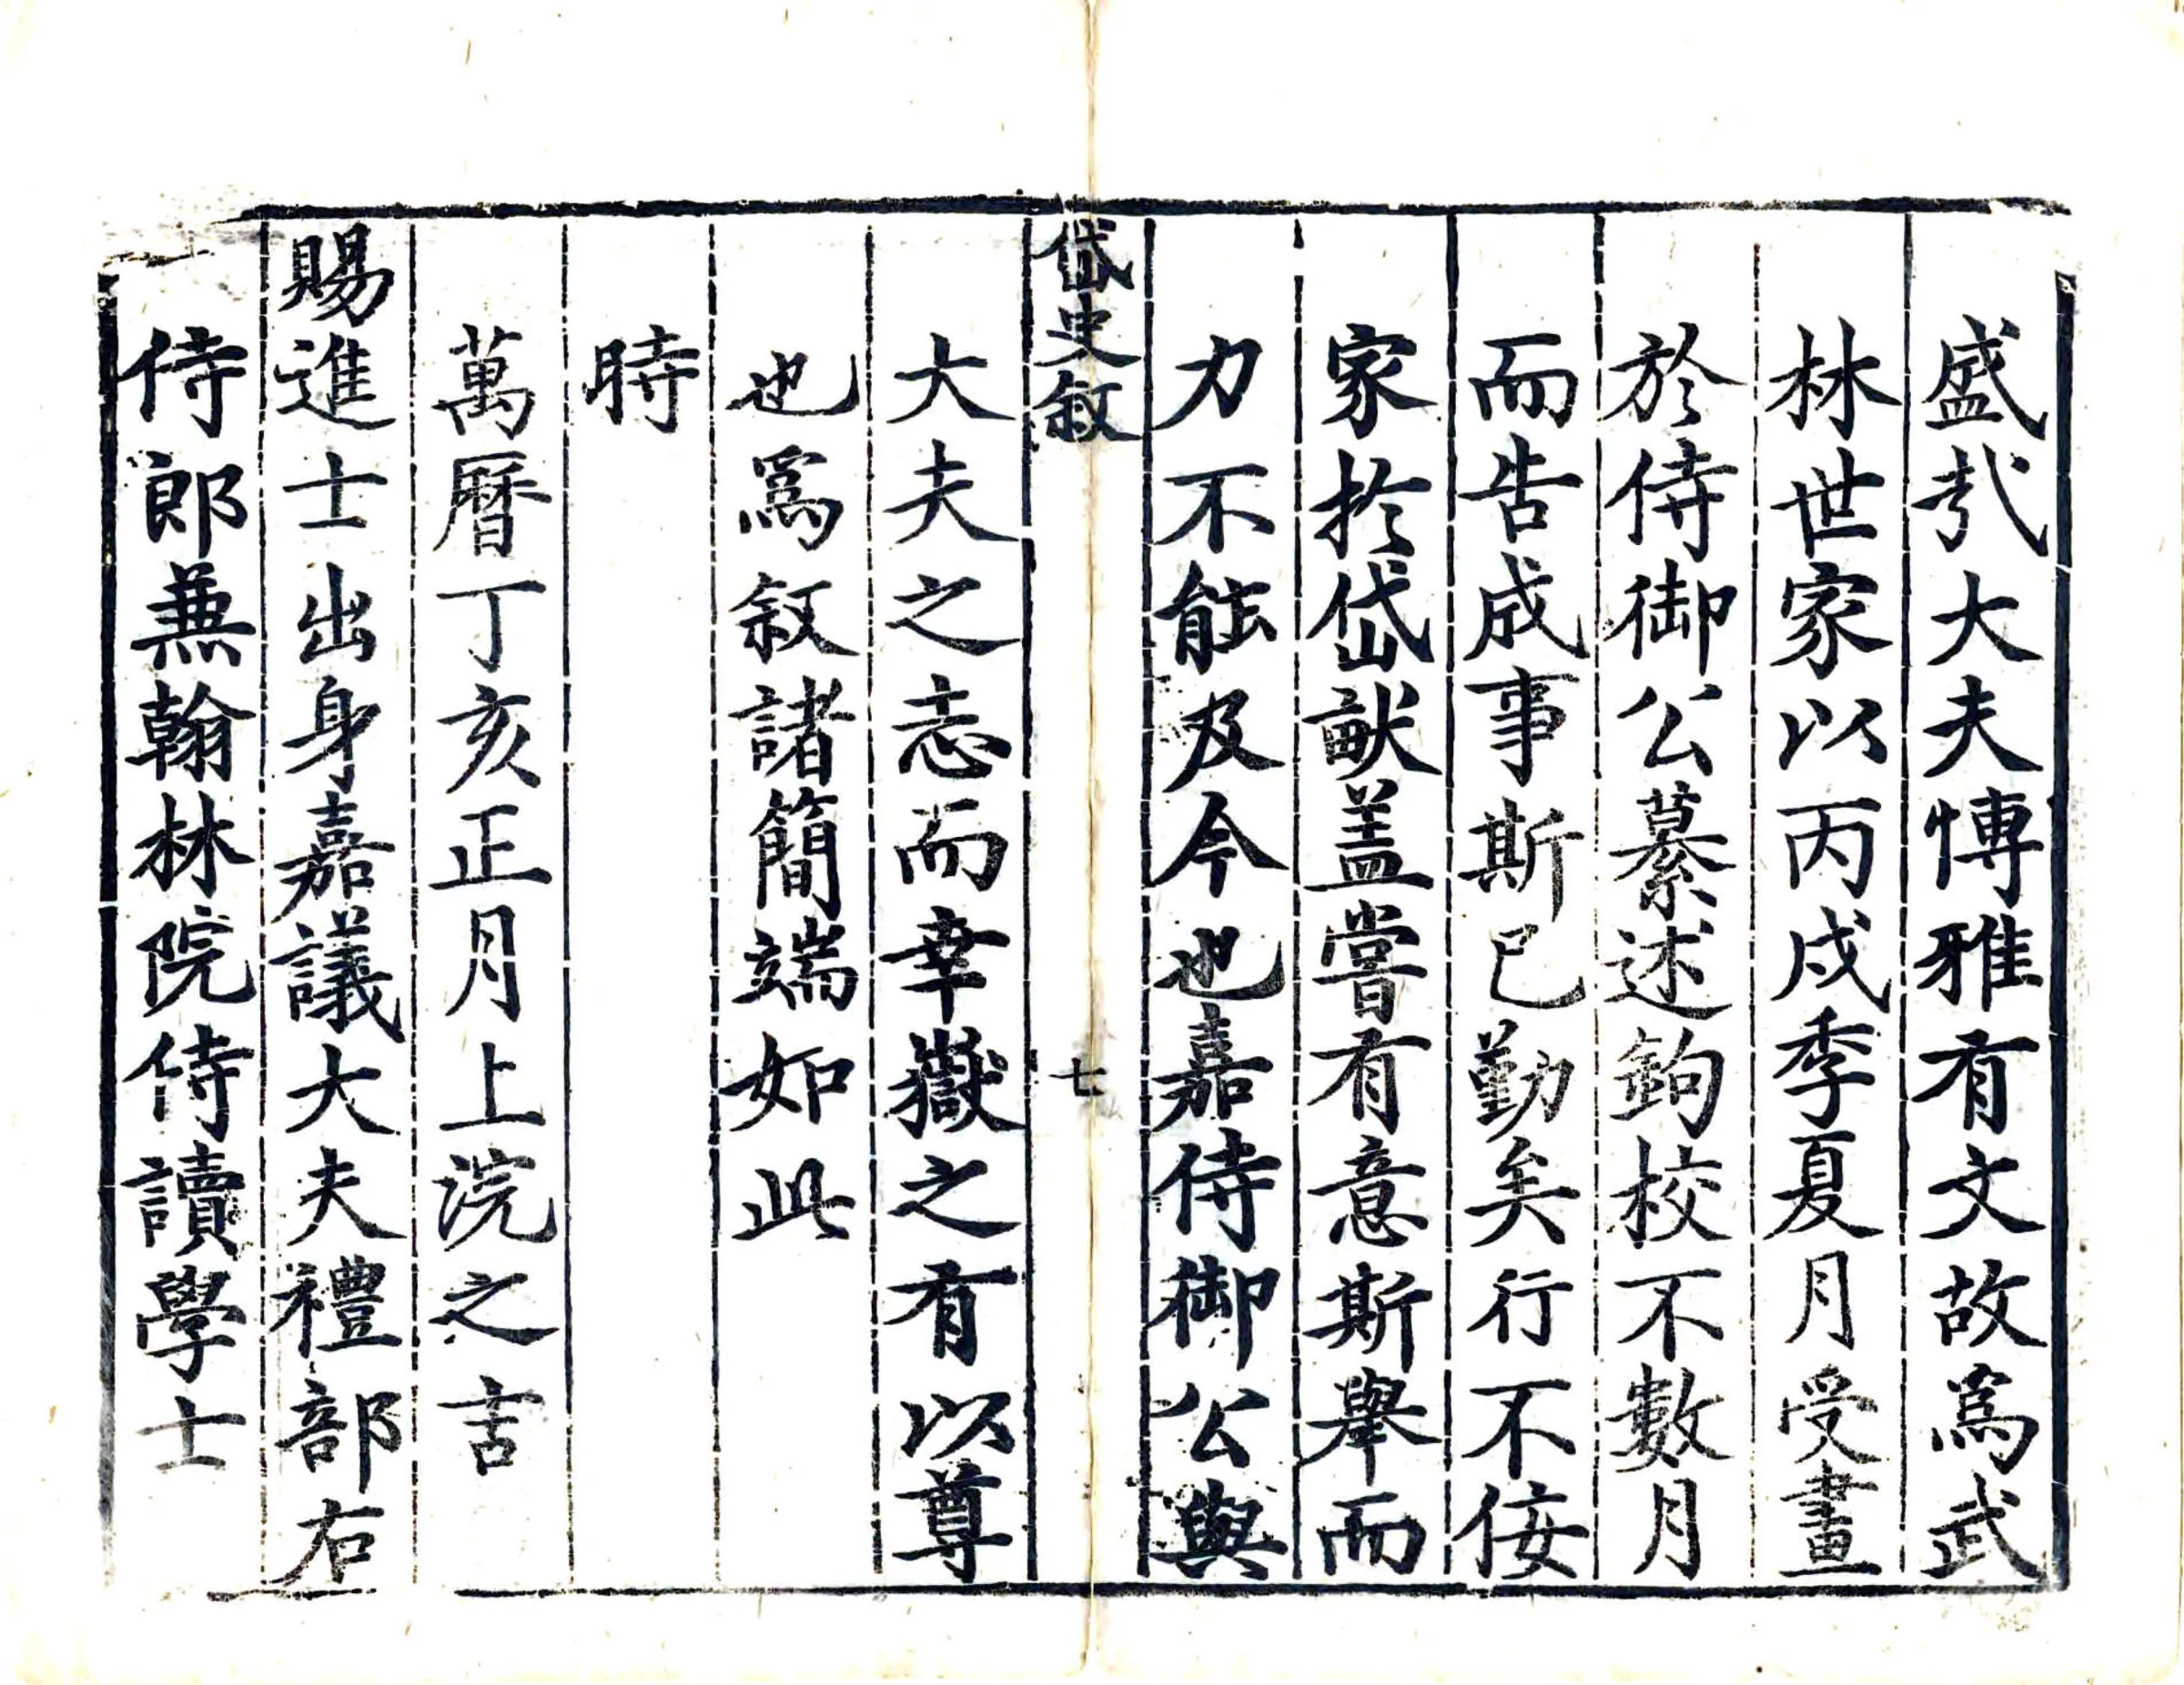 盛哉大夫愽雅有文故爲武
林世家以丙戍季夏月受畫
於侍御公纂述鉤校不數月
而告成事斯已勤矣行不佞
家於岱畎盖嘗有意斯舉而
力不能及今也嘉侍御公與
岱史叙
七
大夫之志而幸嶽之有以尊
也爲叙諸簡端如此
時
萬曆丁亥正月上浣之吉
賜進士出身嘉議大夫禮部右
侍郎兼翰林院侍讀學士